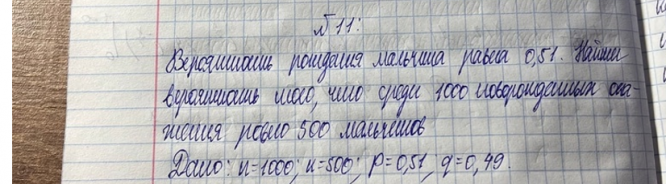 №11:
Вероятность рождения мальчика равна 0,51. Найти
вероятность того, что среди 1000 новорожденных ока-
жется ровно 500 мальчиков
Дано: n=1000; к=500; p=0,51, q=0,49.